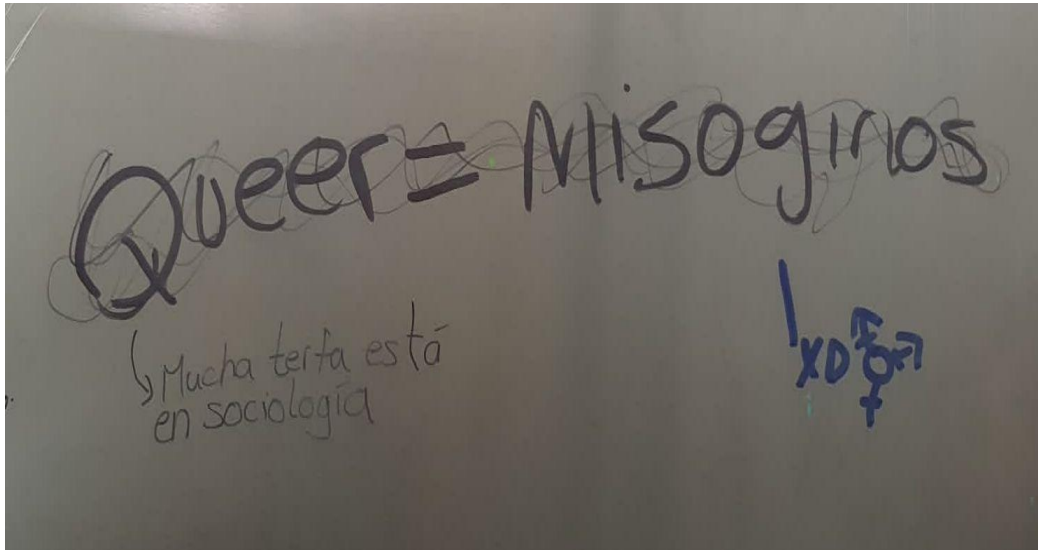 Queer = Misoginos
Mucha terfa está
en sociología
XD ⚧